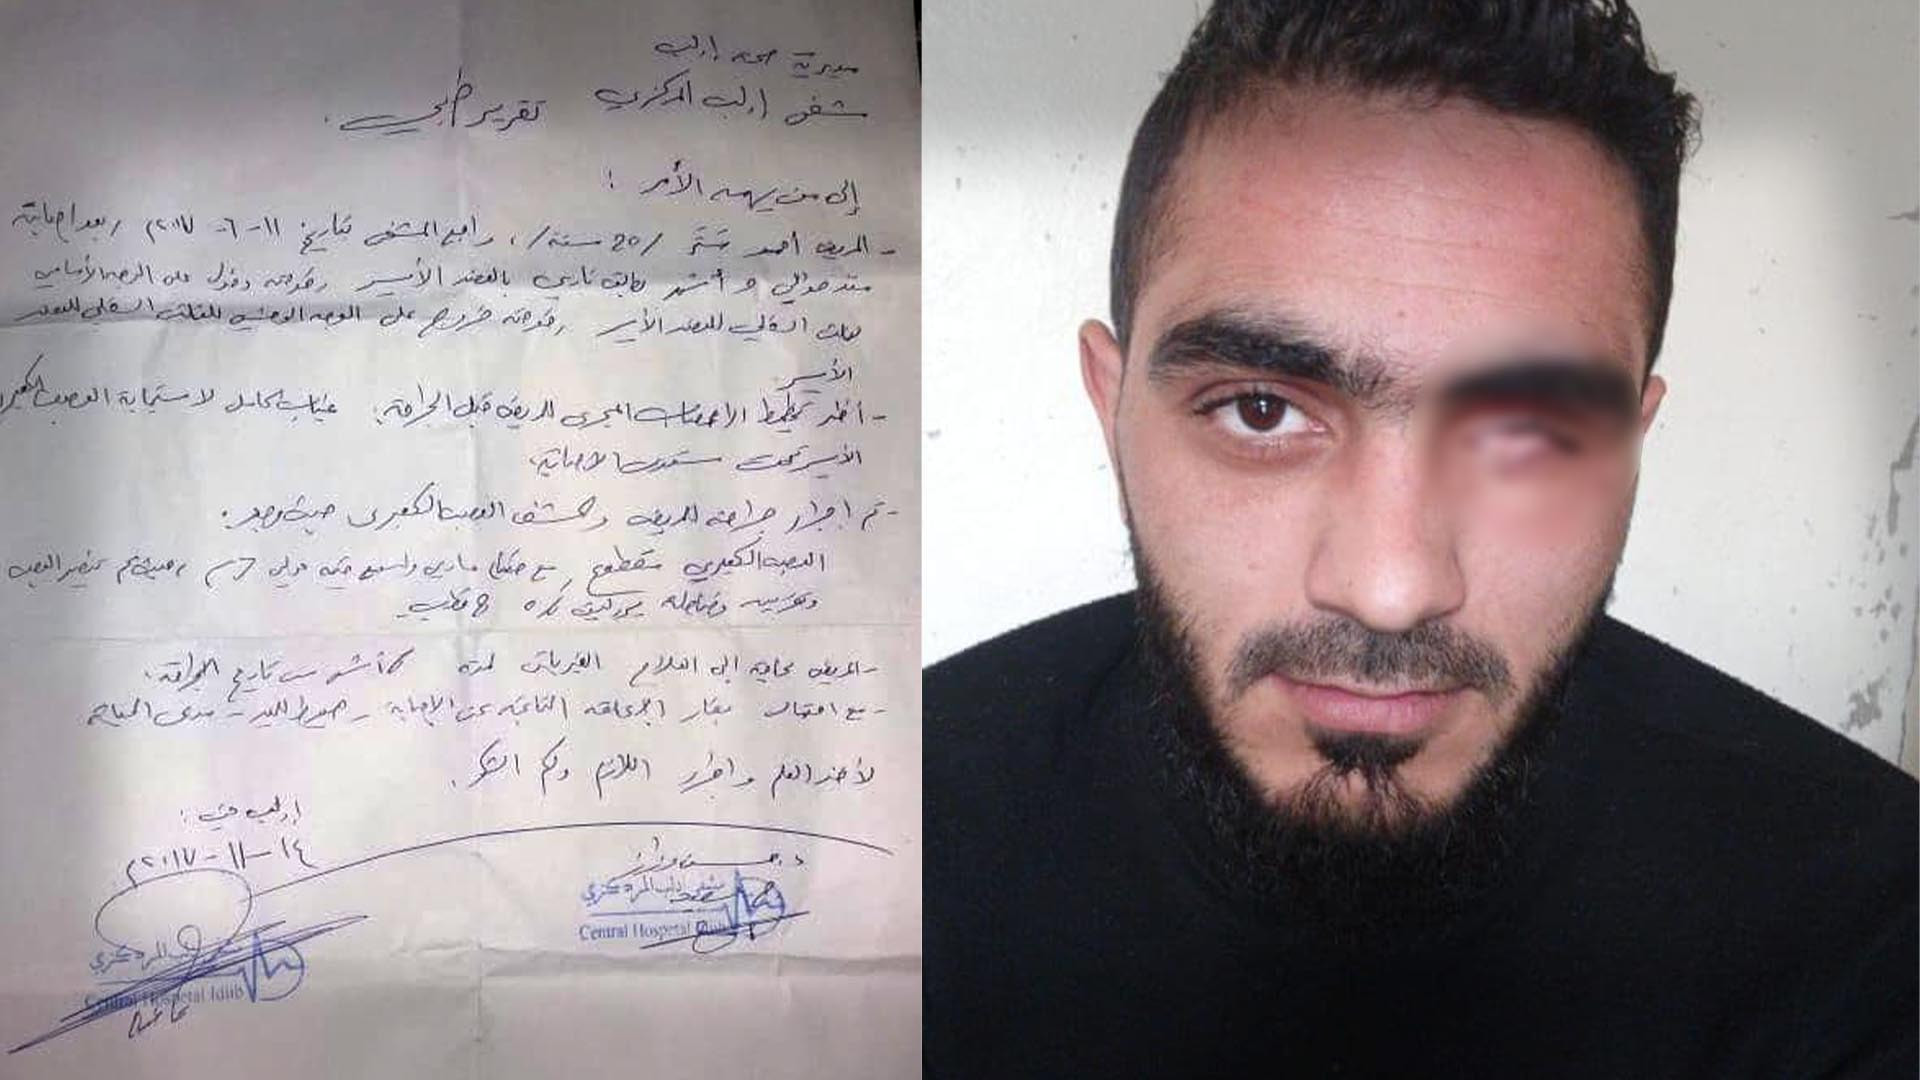 مديرية صحة إدلب
مشفى إدلب المركزي تقرير طبي.
إلى من يهمه الأمر :
- المريض أحمد /20 سنة/، راجع المشفى بتاريخ ١١-٦-٢٠١٧م بعد إصابته
منذ حوالي أشهر بطلق ناري بالعضد الأيسر وفوهة دخول على الوجه الأمامي
السفلي للعضد الأيسر وفوهة خروج على الوجه الوحشي للثلث السفلي للعضد
الأيسر
- أظهر تخطيط الأعصاب المجرى للمريض قبل الجراحة: غياب كامل لاستجابة العصب الكعبري
الأيسر تحت مستوى الإصابة.
- تم إجراء جراحة للمريض وكشف العصب الكعبري حيث وجد:
العصب الكعبري متقطع مع ضياع مادي واسع حوالي 7سم، العصب
8 قطب
- المريض بحاجة إلى العلاج الفيزيائي لمدة أشهر من تاريخ الجراحة.
- مع احتمال بقاء الإعاقة الناتجة عن الإصابة - هبوط اليد - مدى الحياة
لأخذ العلم وإجراء اللازم ولكم الشكر.
إدلب في:
١٤-١١-٢٠١٧م
د. حسن
مشفى إدلب المركزي
Central Hospetal Idlib
إدلب المركزي
Central Hospetal Idlib